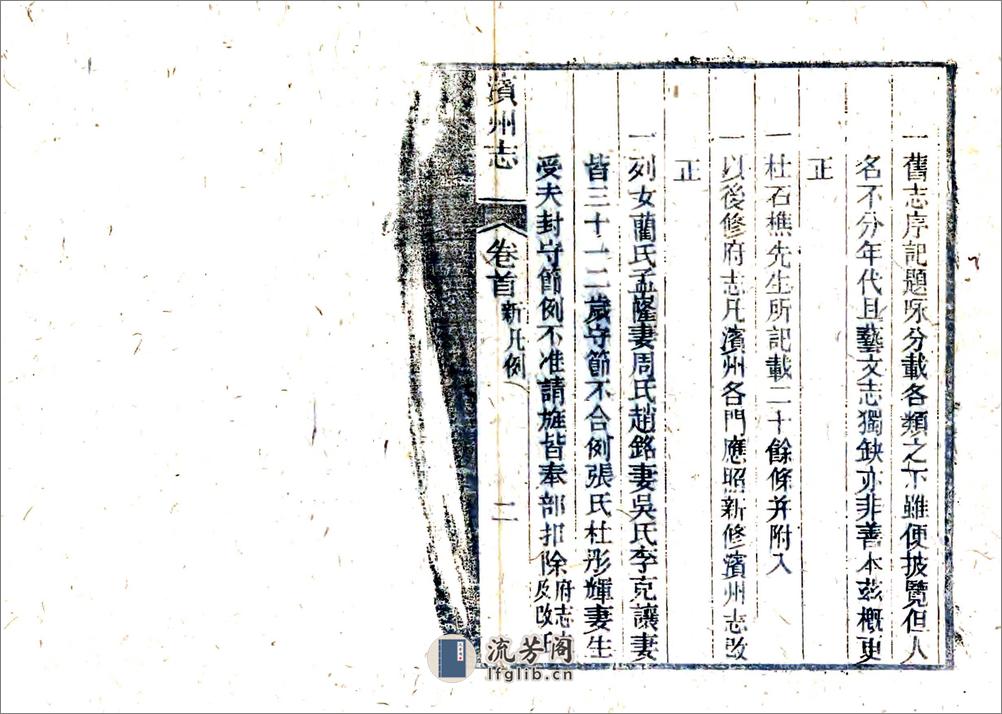 一舊志序記題咏分載各類之下雖便披覽但人
名不分年代且藝文志獨缺亦非善本兹概更
正
一杜石樵先生所記載二十餘條并附入
一以後修府志凡濱州各門應照新修濱州志改
正
一列女藺氏孟隆妻周氏趙銘妻吳氏李克讓妻
皆三十一二歲守節不合例張氏杜彤輝妻生
受夫封守節例不准請旌皆奉部扣除府志
及改
濱州志
卷首
新凡例
二
流芳阁
lfglib.cn